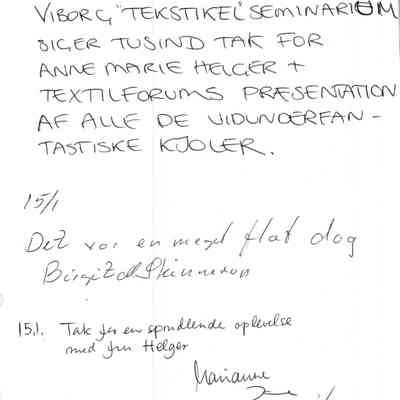 VIBORG "TEKSTIKEL" SEMINARIUM
SIGER TUSIND TAK FOR
ANNE MARIE HELGER +
TEXTILFORUMS PRÆSENTATION
AF ALLE DE VIDUNDERFAN-
TASTISKE KJOLER.
15/1
Det var en meget flot dag
15,1. Tak for en sprudlende oplevelse
med fru Helger
Marianne